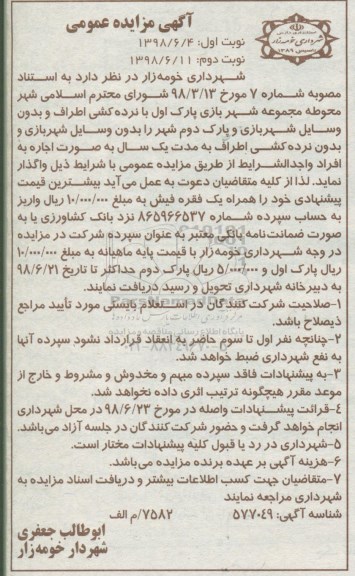 آگهی مزایده عمومی
نوبت اول: ۱۳۹۸/۶/۴
نوبت دوم: ۱۳۹۸/۶/۱۱
شهرداری خومه‌زار
شهرداری خومه‌زار در نظر دارد به استناد
مصوبه شماره ۷ مورخ ۹۸/۳/۱۳ شورای محترم اسلامی شهر
محوطه مجموعه شهر بازی پارک اول با نرده کشی اطراف و بدون
وسایل شهربازی و پارک دوم شهر را بدون وسایل شهربازی و
بدون نرده کشی اطراف به مدت یک سال به صورت اجاره به
افراد واجدالشرایط از طریق مزایده عمومی با شرایط ذیل واگذار
نماید. لذا از کلیه متقاضیان دعوت به عمل می‌آید بیشترین قیمت
پیشنهادی خود را همراه یک فقره فیش به مبلغ ۱۰/۰۰۰/۰۰۰ ریال واریز
به حساب سپرده شماره ۸۶۵۹۶۶۵۳۷ نزد بانک کشاورزی یا به
صورت ضمانت‌نامه بانکی معتبر به عنوان سپرده شرکت در مزایده
در وجه شهرداری خومه‌زار با قیمت پایه ماهیانه به مبلغ ۱۰/۰۰۰/۰۰۰
ریال پارک اول و ۵/۰۰۰/۰۰۰ ریال پارک دوم حداکثر تا تاریخ ۹۸/۶/۲۱
به دبیرخانه شهرداری تحویل و رسید دریافت نمایند.
۱-صلاحیت شرکت کنندگان در استعلام بایستی مورد تأیید مراجع
ذیصلاح باشد.
۲-چنانچه نفر اول تا سوم حاضر به انعقاد قرارداد نشود سپرده آنها
به نفع شهرداری ضبط خواهد شد.
۳-به پیشنهادات فاقد سپرده مبهم و مخدوش و مشروط و خارج از
موعد مقرر هیچگونه ترتیب اثری داده نخواهد شد.
۴-قرائت پیشنهادات واصله در مورخ ۹۸/۶/۲۳ در محل شهرداری
انجام خواهد گرفت و حضور شرکت کنندگان در جلسه آزاد می‌باشد.
۵-شهرداری در رد یا قبول کلیه پیشنهادات مختار است.
۶-هزینه آگهی بر عهده برنده مزایده می‌باشد.
۷-متقاضیان جهت کسب اطلاعات بیشتر و دریافت اسناد مزایده به
شهرداری مراجعه نمایند
شناسه آگهی: ۵۷۷۰۴۹ ۷۵۸۲/م الف
ابوطالب جعفری
شهردار خومه‌زار